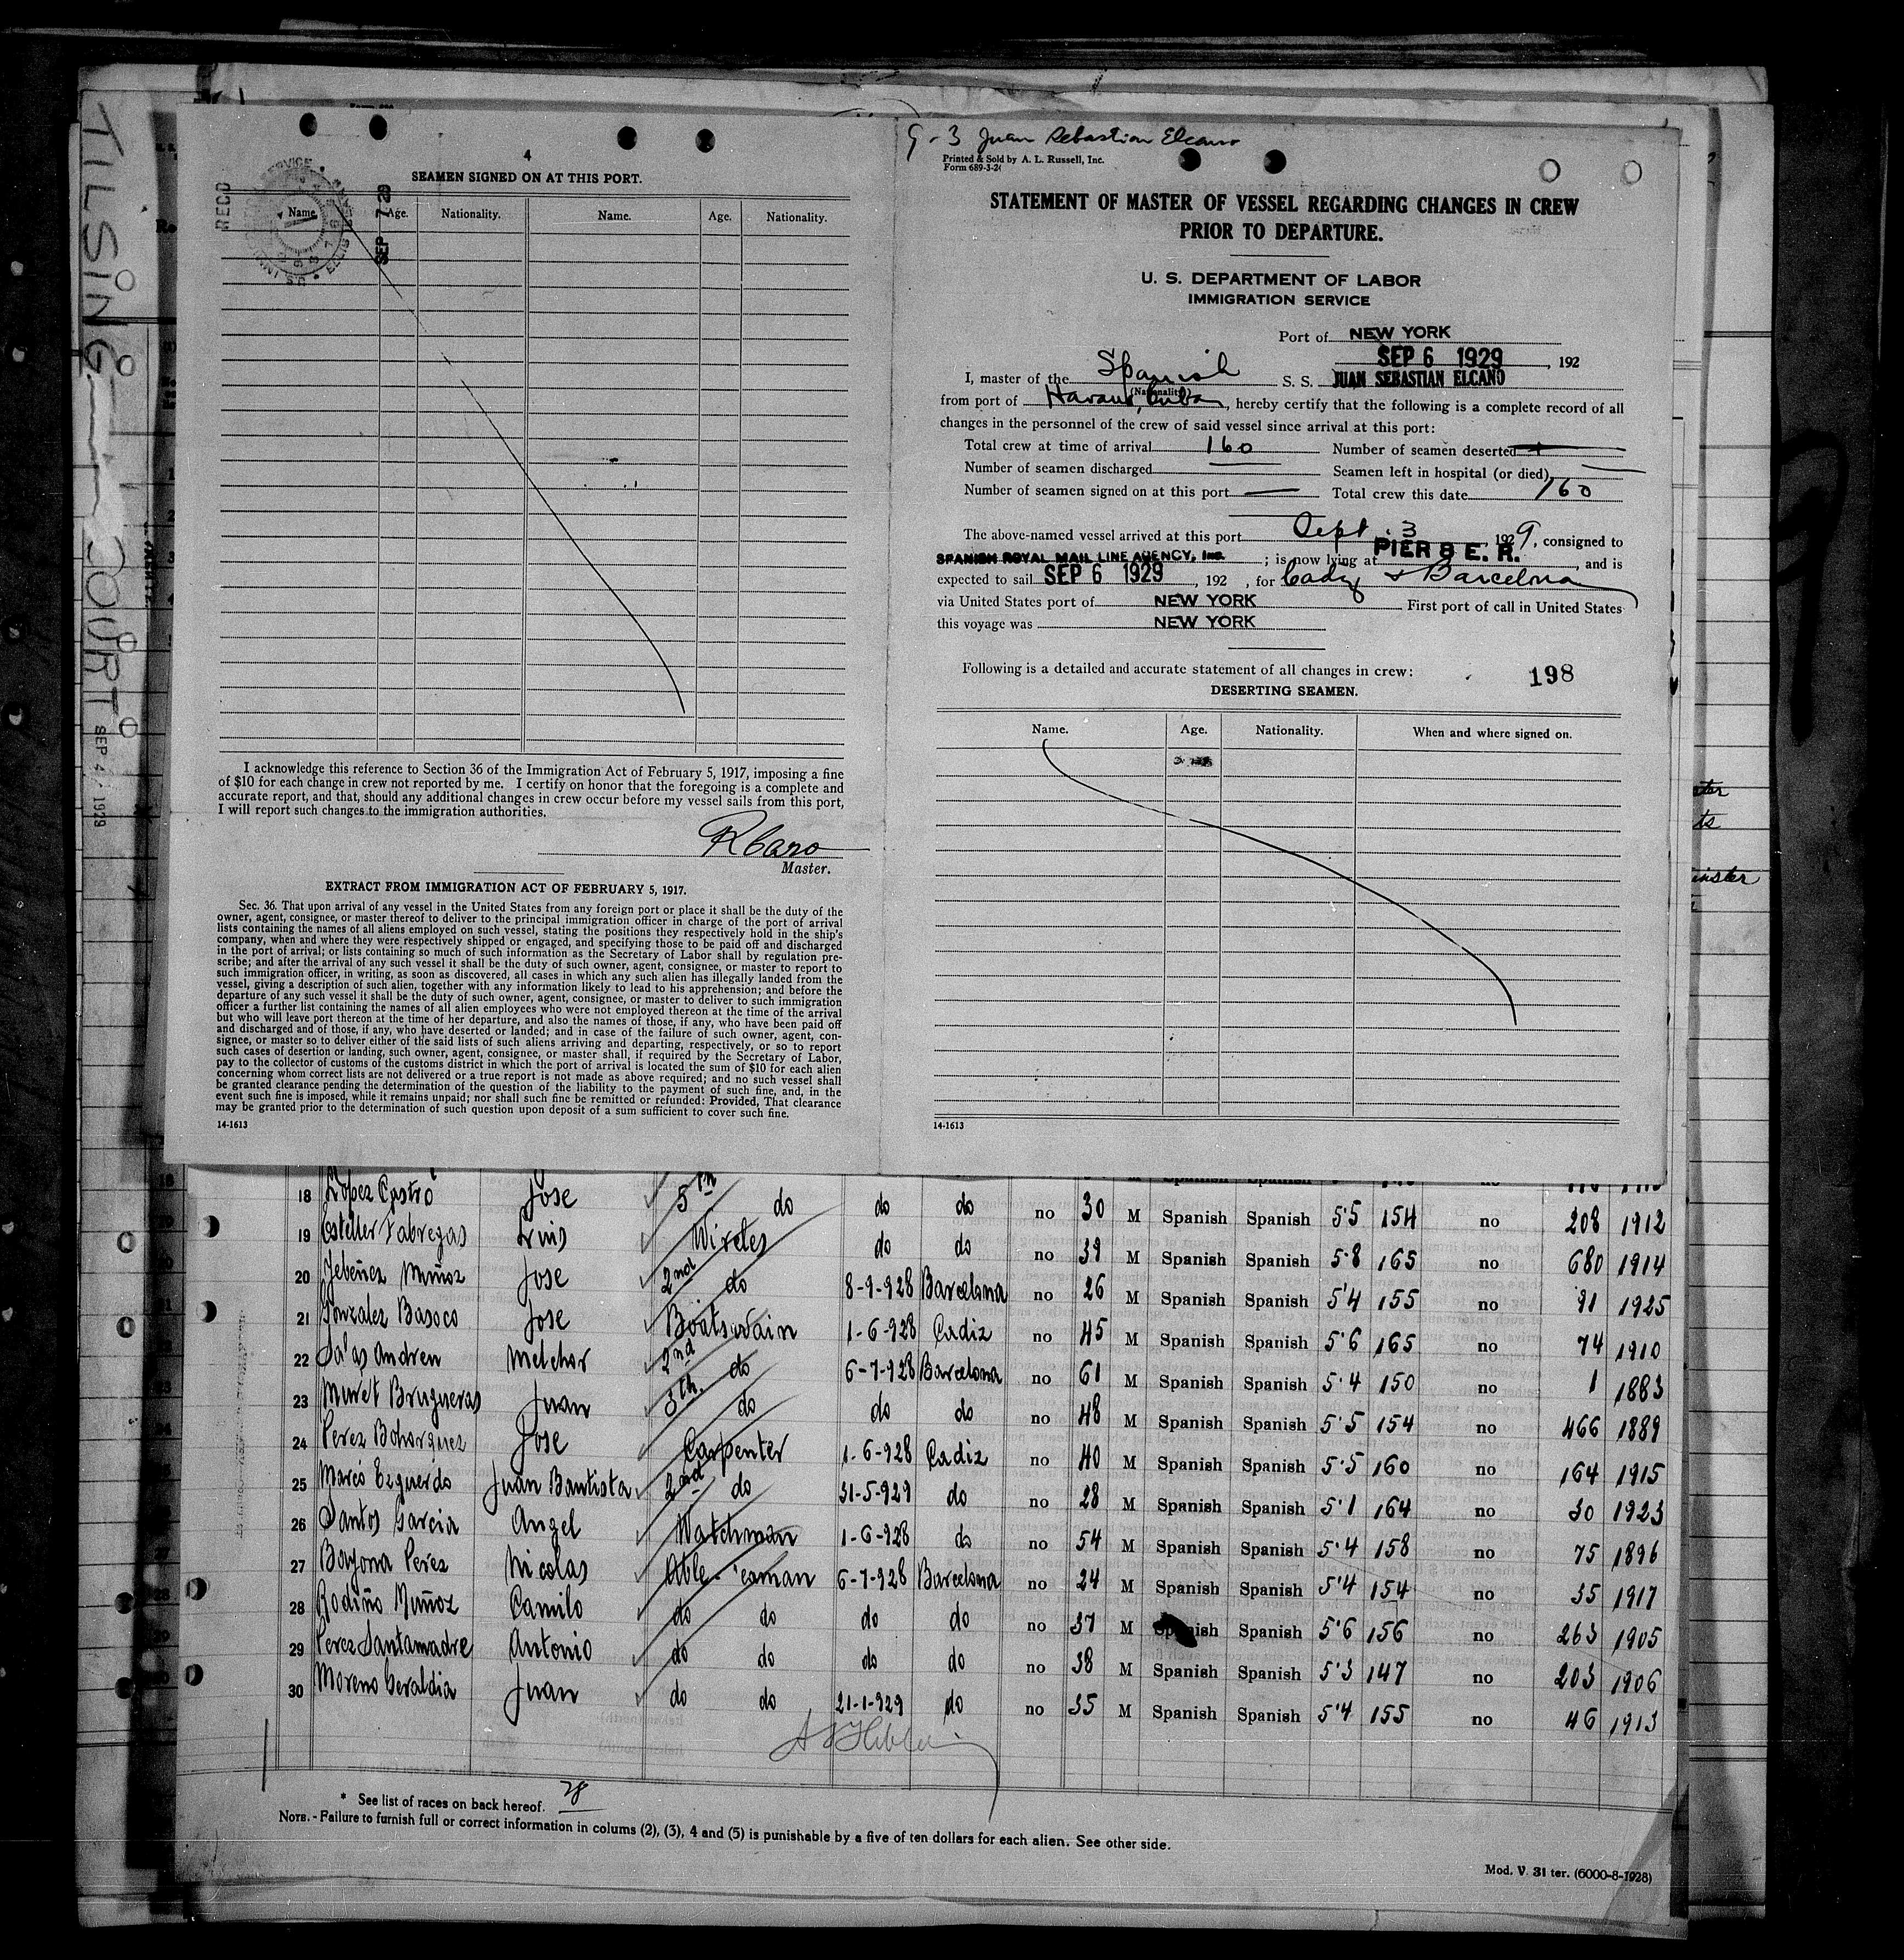 TILSING COURT
SEP 4 1929
4
SEAMEN SIGNED ON AT THIS PORT.
RECD
SEP 7 29
Name. Age. Nationality. Name. Age. Nationality.
I acknowledge this reference to Section 36 of the Immigration Act of February 5, 1917, imposing a fine
of $10 for each change in crew not reported by me. I certify on honor that the foregoing is a complete and
accurate report, and that, should any additional changes in crew occur before my vessel sails from this port,
I will report such changes to the immigration authorities.
Master.
EXTRACT FROM IMMIGRATION ACT OF FEBRUARY 5, 1917.
Sec. 36. That upon arrival of any vessel in the United States from any foreign port or place it shall be the duty of the
owner, agent, consignee, or master thereof to deliver to the principal immigration officer in charge of the port of arrival
lists containing the names of all aliens employed on such vessel, stating the positions they respectively hold in the ship's
company, when and where they were respectively shipped or engaged, and specifying those to be paid off and discharged
in the port of arrival; or lists containing so much of such information as the Secretary of Labor shall by regulation pre-
scribe; and after the arrival of any such vessel it shall be the duty of such owner, agent, consignee, or master to report to
such immigration officer, in writing, as soon as discovered, all cases in which any such alien has illegally landed from the
vessel, giving a description of such alien, together with any information likely to lead to his apprehension; and before the
departure of any such vessel it shall be the duty of such owner, agent, consignee, or master to deliver to such immigration
officer a further list containing the names of all alien employees who were not employed thereon at the time of the arrival
but who will leave port thereon at the time of her departure, and also the names of those, if any, who have been paid off
and discharged and of those, if any, who have deserted or landed; and in case of the failure of such owner, agent, con-
signee, or master so to deliver either of the said lists of such aliens arriving and departing, respectively, or so to report
such cases of desertion or landing, such owner, agent, consignee, or master shall, if required by the Secretary of Labor,
pay to the collector of customs of the customs district in which the port of arrival is located the sum of $10 for each alien
concerning whom correct lists are not delivered or a true report is not made as above required; and no such vessel shall
be granted clearance pending the determination of the question of the liability to the payment of such fine, and, in the
event such fine is imposed, while it remains unpaid; nor shall such fine be remitted or refunded: Provided, That clearance
may be granted prior to the determination of such question upon deposit of a sum sufficient to cover such fine.
14-1613
9-3 Juan Sebastian Elcano
Printed & Sold by A. L. Russell, Inc.
Form 689-3-26
STATEMENT OF MASTER OF VESSEL REGARDING CHANGES IN CREW
PRIOR TO DEPARTURE.
U. S. DEPARTMENT OF LABOR
IMMIGRATION SERVICE
Port of NEW YORK
SEP 6 1929, 192
I, master of the Spanish S. S. JUAN SEBASTIAN ELCANO
(Nationality)
from port of Havana, Cuba, hereby certify that the following is a complete record of all
changes in the personnel of the crew of said vessel since arrival at this port:
Total crew at time of arrival 160 Number of seamen deserted
Number of seamen discharged — Seamen left in hospital (or died) —
Number of seamen signed on at this port — Total crew this date 160
The above-named vessel arrived at this port Sept. 3, 1929, consigned to
SPANISH ROYAL MAIL LINE AGENCY, Inc.; is now lying at PIER 8 E. R., and is
expected to sail SEP 6 1929, 192 , for Cadiz & Barcelona
via United States port of NEW YORK First port of call in United States
this voyage was NEW YORK
Following is a detailed and accurate statement of all changes in crew: 198
DESERTING SEAMEN.
Name. Age. Nationality. When and where signed on.
14-1613
18 Lopez Castro Jose 5th do do do no 30 M Spanish Spanish 5'5 154 no 208 1912
19 Esteller Fabregas Luis Wireles do do no 39 M Spanish Spanish 5'8 165 no 680 1914
20 Jebenez Muñoz Jose 2nd do 8-9-928 Barcelona no 26 M Spanish Spanish 5'4 155 no 91 1925
21 Gonzalez Basoco Jose Boatswain 1-6-928 Cadiz no 45 M Spanish Spanish 5'6 165 no 74 1910
22 Salas Andreu Melchor 2nd do 6-7-928 Barcelona no 61 M Spanish Spanish 5'4 150 no 1 1883
23 Muret Brugueras Juan 3th. do do do no 48 M Spanish Spanish 5'5 154 no 466 1889
24 Perez Bohorquez Jose Carpenter 1-6-928 Cadiz no 40 M Spanish Spanish 5'5 160 no 164 1915
25 Marcó Ezquerdo Juan Bautista 2nd do 31-5-929 do no 28 M Spanish Spanish 5'1 164 no 30 1923
26 Santos Garcia Angel Watchman 1-6-928 do no 54 M Spanish Spanish 5'4 158 no 75 1896
27 Bayona Perez Nicolas Able seaman 6-7-928 Barcelona no 24 M Spanish Spanish 5'4 154 no 35 1917
28 Rodiño Muñoz Camilo do do do do no 37 M Spanish Spanish 5'6 156 no 263 1905
29 Perez Santamadre Antonio do do do do no 38 M Spanish Spanish 5'3 147 no 203 1906
30 Moreno Geraldia Juan do do 21-1-929 do no 35 M Spanish Spanish 5'4 155 no 46 1913
* See list of races on back hereof. 28
NOTE. - Failure to furnish full or correct information in colums (2), (3), 4 and (5) is punishable by a five of ten dollars for each alien. See other side.
Mod. V. 31 ter. (6000-8-1928)